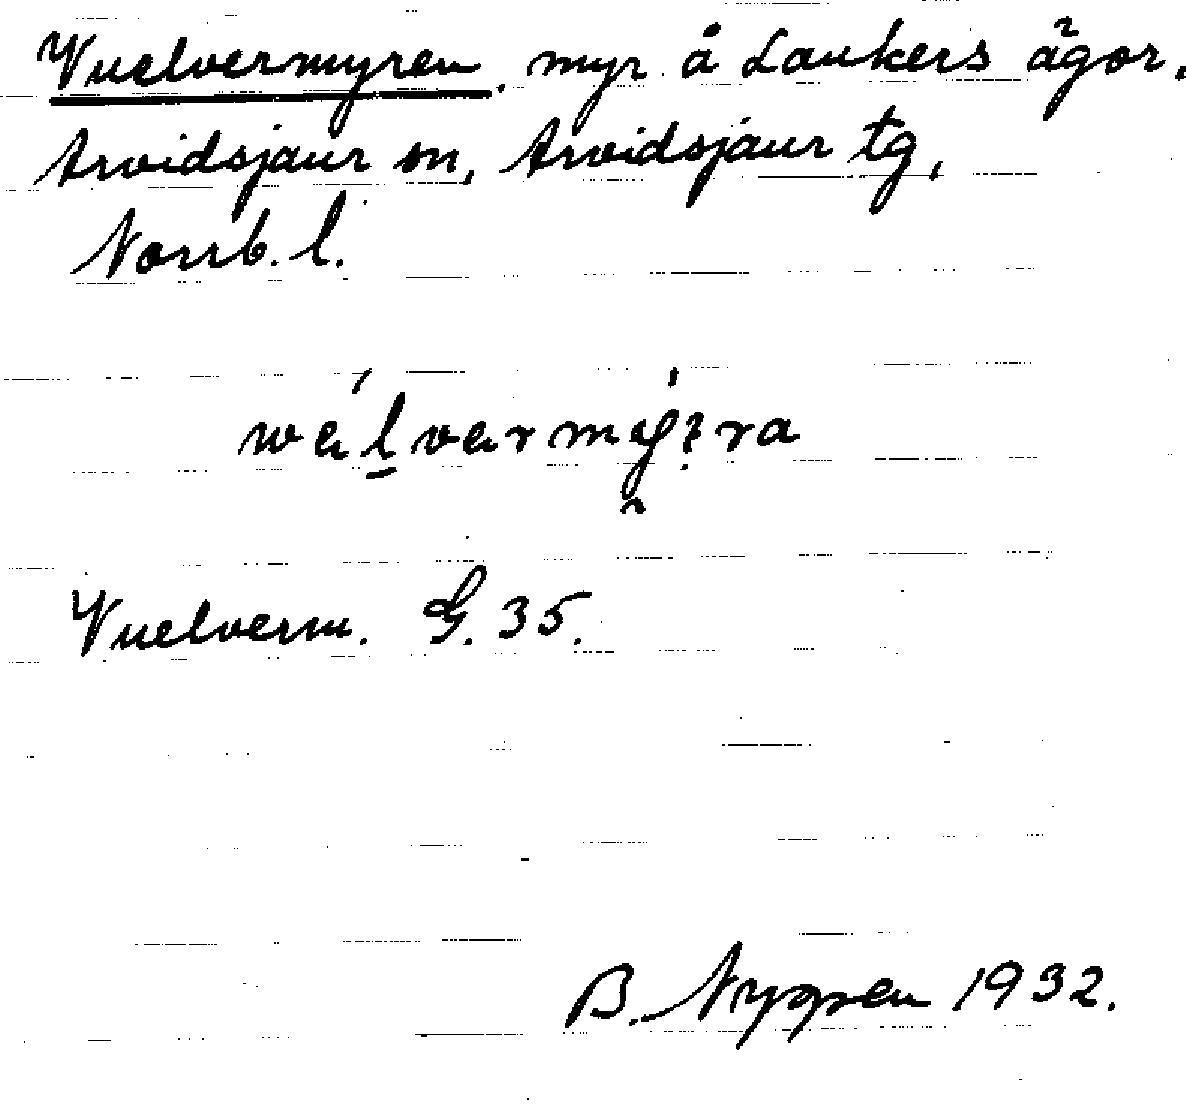 Vuelvermyren, myr å Laukers ägor,
Arvidsjaur sn, Arvidsjaur tg,
Norrb. l.
Vuelverm. G. 35.
B. Nyppen 1932.